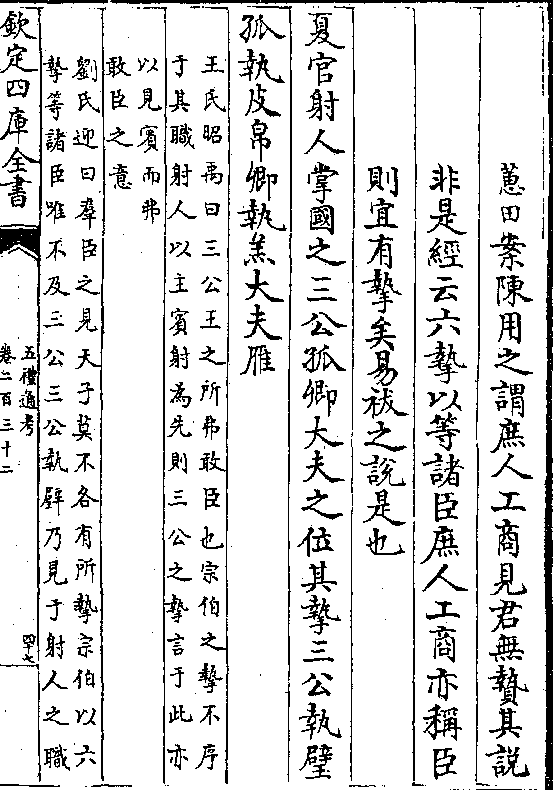 蕙田案陳用之謂庶人工商見君無贄其説
非是經云六摯以等諸臣庶人工商亦稱臣
則宜有摯矣易祓之説是也
夏官射人掌國之三公孤卿大夫之位其摯三公執璧
孤執皮帛卿執羔大夫雁
王氏昭禹曰三公王之所弗敢臣也宗伯之摯不序
于其職射人以主賓射為先則三公之摯言于此亦
以見賓而弗
敢臣之意
劉氏迎曰羣臣之見天子莫不各有所摯宗伯以六
摯等諸臣唯不及三公三公執璧乃見于射人之職
欽定四庫全書
五禮通考
卷二百三十二
四十七